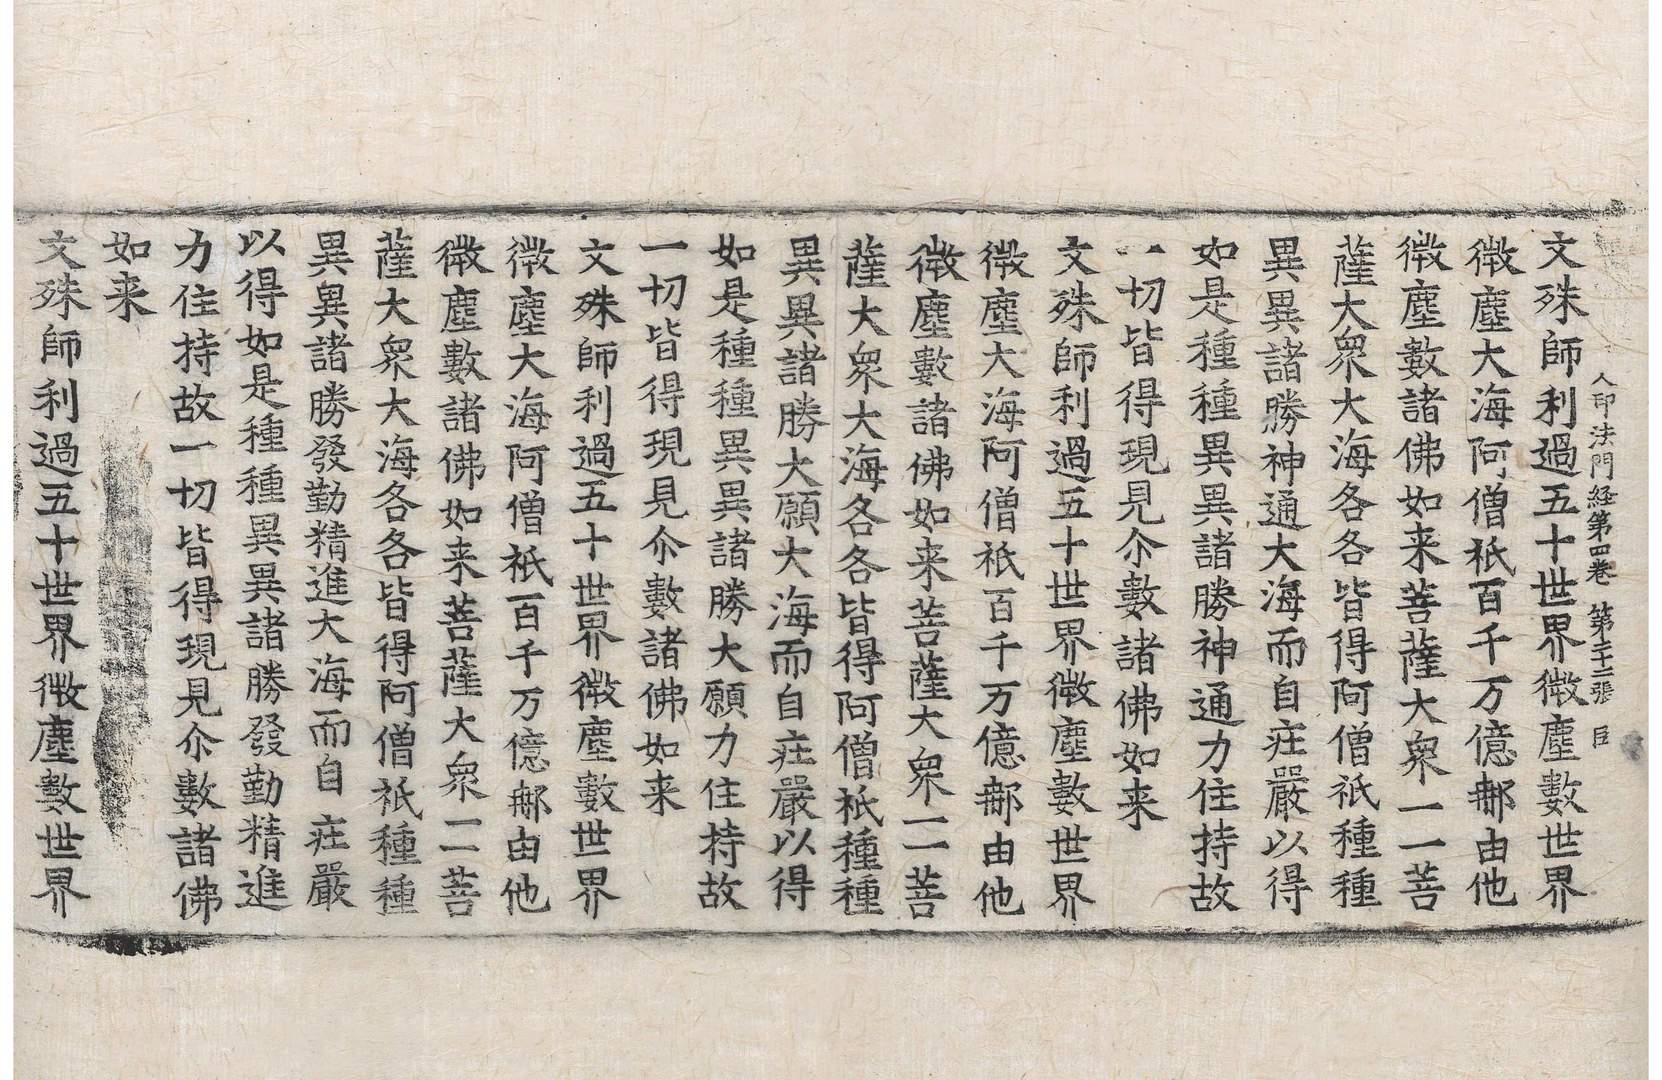 人印法門経第四巻 第二十二張 臣
文殊師利過五十世界微塵數世界
微塵大海阿僧祇百千万億那由他
微塵數諸佛如来菩薩大衆一一菩
薩大衆大海各各皆得阿僧祇種種
異異諸勝神通大海而自荘嚴以得
如是種種異異諸勝神通力住持故
一切皆得現見尒數諸佛如来
文殊師利過五十世界微塵數世界
微塵大海阿僧祇百千万億那由他
微塵數諸佛如来菩薩大衆一一菩
薩大衆大海各各皆得阿僧祇種種
異異諸勝大願大海而自荘嚴以得
如是種種異異諸勝大願力住持故
一切皆得現見尒數諸佛如来
文殊師利過五十世界微塵數世界
微塵大海阿僧祇百千万億那由他
微塵數諸佛如来菩薩大衆一一菩
薩大衆大海各各皆得阿僧祇種種
異異諸勝發勤精進大海而自荘嚴
以得如是種種異異諸勝發勤精進
力住持故一切皆得現見尒數諸佛
如来
文殊師利過五十世界微塵數世界